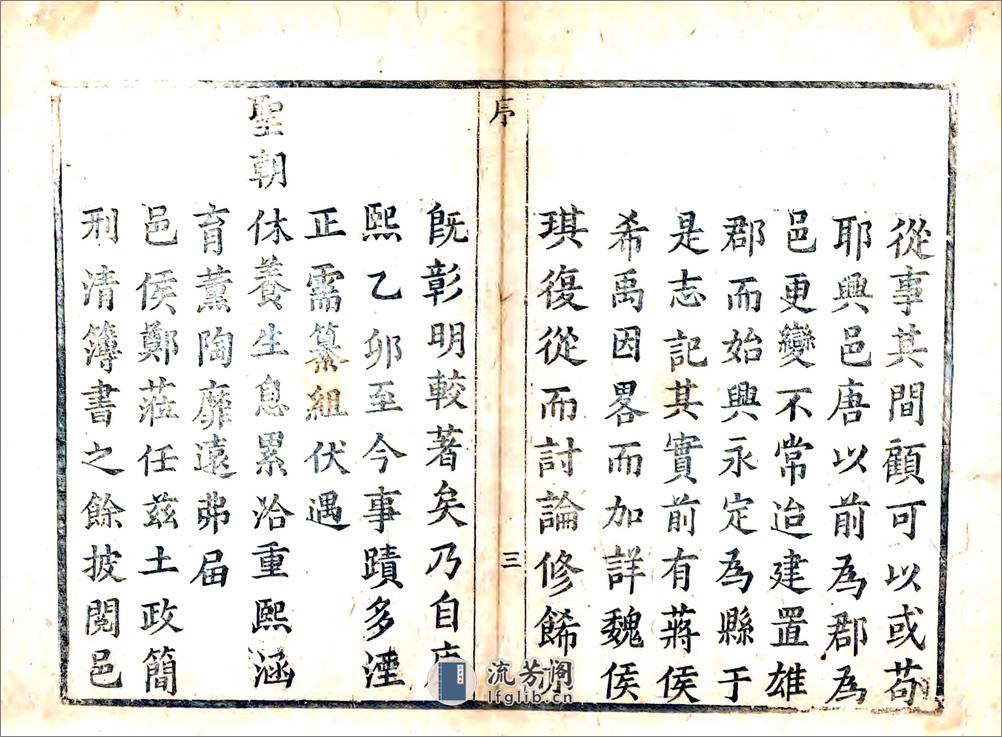 從事其間顧可以或苟
耶興邑唐以前為郡為
邑更變不常迨建置雄
郡而始興永定為縣于
是志記其實前有蔣侯
希禹因畧而加詳魏侯
琪復從而討論修餙
序
三
旣彰明較著矣乃自康
熙乙卯至今事蹟多湮
正需纂組伏遇
聖朝休養生息累洽重熙涵
育薰陶靡遠弗屆
邑侯鄭莅任茲土政簡
刑清簿書之餘披閱邑
流芳阁
lfglib.cn